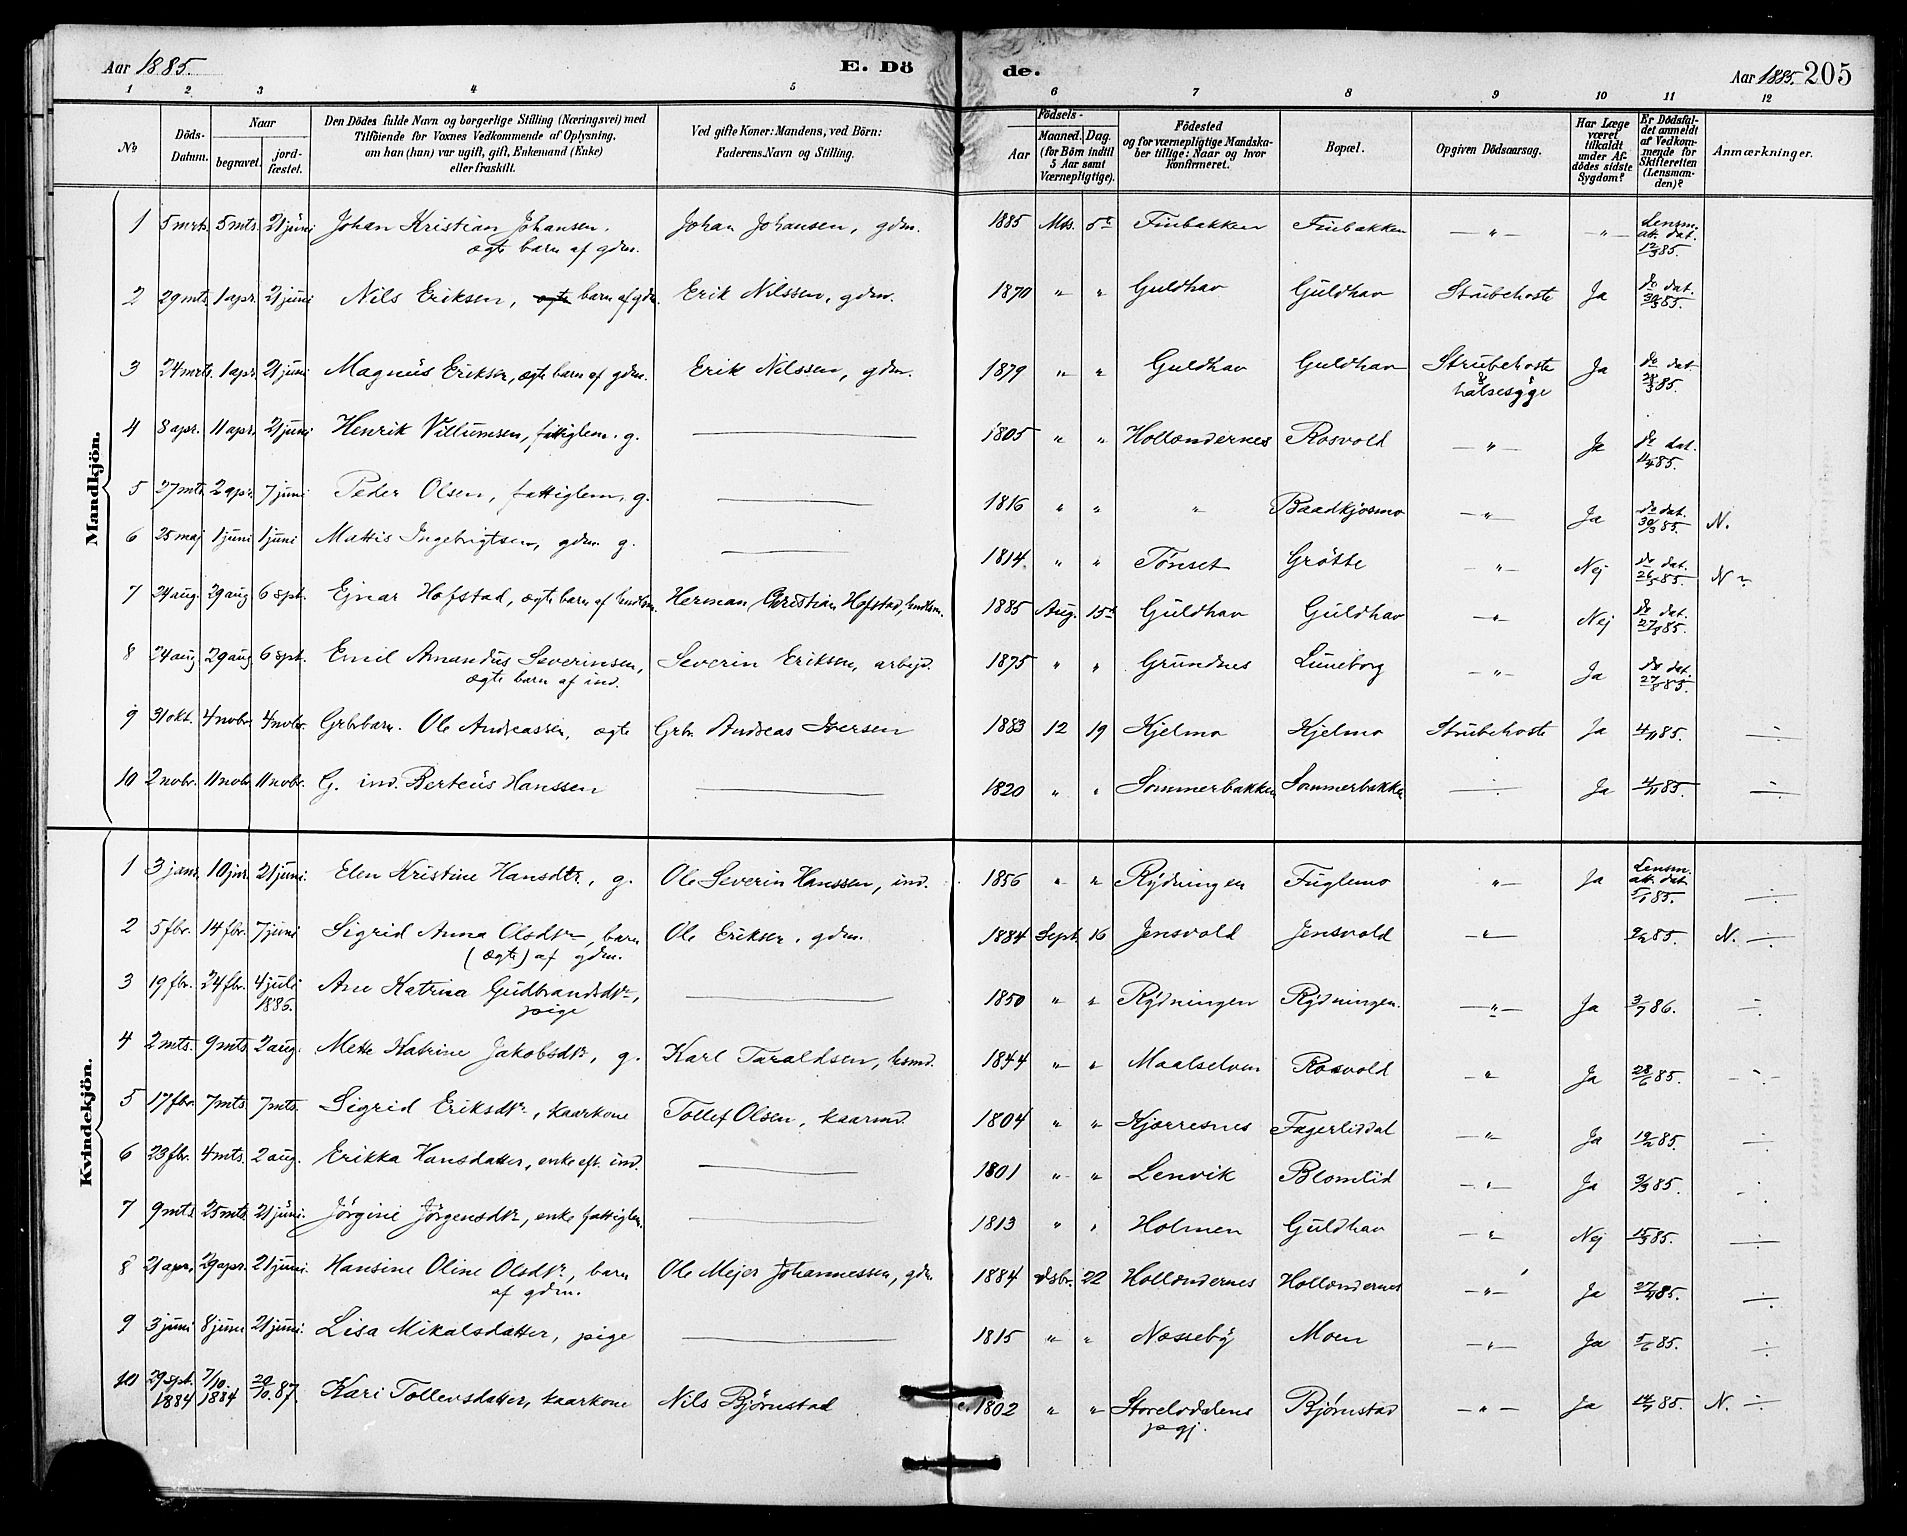 Aar 1885. E. Dö de. Aar 1885. 205
1 2 3 4 5 6 7 8 9 10 11 12
No Döds-Datum. Naar begravet. jordfæstet. Den Dödes fulde Navn og borgerlige Stilling (Næringsvei) med Tilföiende for Voxnes Vedkommende af Oplysning, om han (hun) var ugift, gift, Enkemand (Enke) eller fraskilt. Ved gifte Koner: Mandens, ved Börn: Faderens Navn og Stilling. Födsels- Aar Maaned. Dag. (for Börn indtil 5 Aar samt Værnepligtige). Födested og for værnepligtige Mandskaber tillige: Naar og hvor konfirmeret. Bopæl. Opgiven Dödsaarsag. Har Læge været tilkaldt under Afdödes sidste Sygdom? Er Dödsfaldet anmeldt af Vedkommende for Skifteretten (Lensmanden)? Anmærkninger.
Mandkjön.
1 5 mrts. 5 mts. 21 juni Johan Kristian Johansen, ægte barn af gdm. Johan Johansen, gdm. 1885 Mts. 5te Finbakken Finbakken — " — — " — Lensm. att. dat. 12/3 85.
2 29 mts. 1 apr. 21 juni Nils Eriksen, ægte barn af gdm. Erik Nilssen, gdm. 1870 " " Guldhav Guldhav Strubehoste Ja do dat. 30/3 85.
3 24 mrts. 1 apr. 21 juni Magnus Eriksen, ægte barn af gdm. Erik Nilssen, gdm. 1879 " " Guldhav Guldhav Strubehoste & halsesyge Ja do dat 28/3 85.
4 8 apr. 11 apr. 21 juni Henrik Villumsen, fattiglem. g. — 1805 " " Hollændernes Rosvold — " — Ja do dat. 11/4 85.
5 27 mts. 2 apr. 7 juni Peder Olsen, fattiglem, g. — 1816 " " " Baadkjosmo — " — Ja do dat. 30/3 85. N.
6 25 maj 1 juni 1 juni Mattis Ingebrigtsen, gdm. g. — 1814. " " Tönset Grötte — " — Nej do dat. 26/5 85. N.
7 24 aug. 29 aug 6 spt. Ejnar Hofstad, ægte barn af hndlsm. Herman Christian Hofstad, hndlsm. 1885 Aug. 15de Guldhav Guldhav — " — Nej do dat. 27/8 85.
8 24 aug 29 aug 6 spt. Emil Amandus Severinsen, ægte barn af ind. Severin Eriksen, arbejd. 1875 " " Grundnes Luneborg — " — Ja do dat. 27/8 85.
9 31 okt. 4 nobr. 4 nobr. Grbr.barn. Ole Andreassen, ægte Grbr. Andreas Iversen 1883 12 19 Kjelmo Kjelmo Strubehoste Ja 4/11 85. ÷
10 2 nobr. 11 nobr 11 nobr. G. ind. Berteus Hanssen — 1820 " " Sommerbakken Sommerbakken ÷ Ja 4/11 85. ÷
Kvindekjön.
1 3 janr. 10 jnr. 21 juni. Elen Kristine Hansdtr, g. Ole Severin Hanssen, ind. 1856 " " Rydningen Fuglemo " Ja Lensm. att. dat 5/1 85. ÷
2 5 fbr. 14 fbr. 7 juni Sigrid Anna Olsdtr, barn (ægte) af gdm. Ole Eriksen, gdm. 1884 Sept 16 Jensvold Jensvold — " — 9/2 85. N. ÷
3 19 fbr. 24 fbr. 4 juli 1886. Ane Katrina Gudbrandsdtr, pige — 1850 " " Rydningen Rydningen. — " — Ja 3/7 86. ÷
4 2 mts. 9 mts. 2 aug. Mette Katrine Jakobsdtr, g. Karl Taraldsen, hsmd. 1844 " " Maalselven Rosvold — " Ja 28/6 85. ÷
5 17 fbr. 7 mts. 7 mts. Sigrid Eriksdtr, kaarkone Tollef Olsen, kaarmd. 1804 " " Kjærresnes Fagerliddal — " — Ja 19/2 85. ÷
6 23 fbr. 4 mts. 2 aug. Erikka Hansdatter, enke eft. ind. — 1801 " " Lenvik Blomlid — " — Ja 3/3 85. ÷
7 9 mts 25 mts. 21 juni. Jørgine Jørgensdtr, enke fattiglem. — 1813 " " Holmen Guldhav — " Nej 15/3 85. ÷
8 21 apr. 29 apr. 21 juni. Hansine Oline Olsdtr, barn af gdm. Ole Mejer Johannessen, gdm 1884 dsbr. 22 Hollændernes Hollændernes — " — Ja 27/4 85. ÷
9 3 juni 8 juni 21 juni. Lisa Mikalsdatter, pige — 1815 " " Næsseby Moen — " — Ja 5/6 85. ÷
10 29 spt. 1884 7/10 1884 20/10. 87. Kari Tollevsdatter, kaarkone Nils Bjørnstad c. 1802 " " Storelvdalens pgj. Bjørnstad — " — Ja 14/7 85. N. ÷